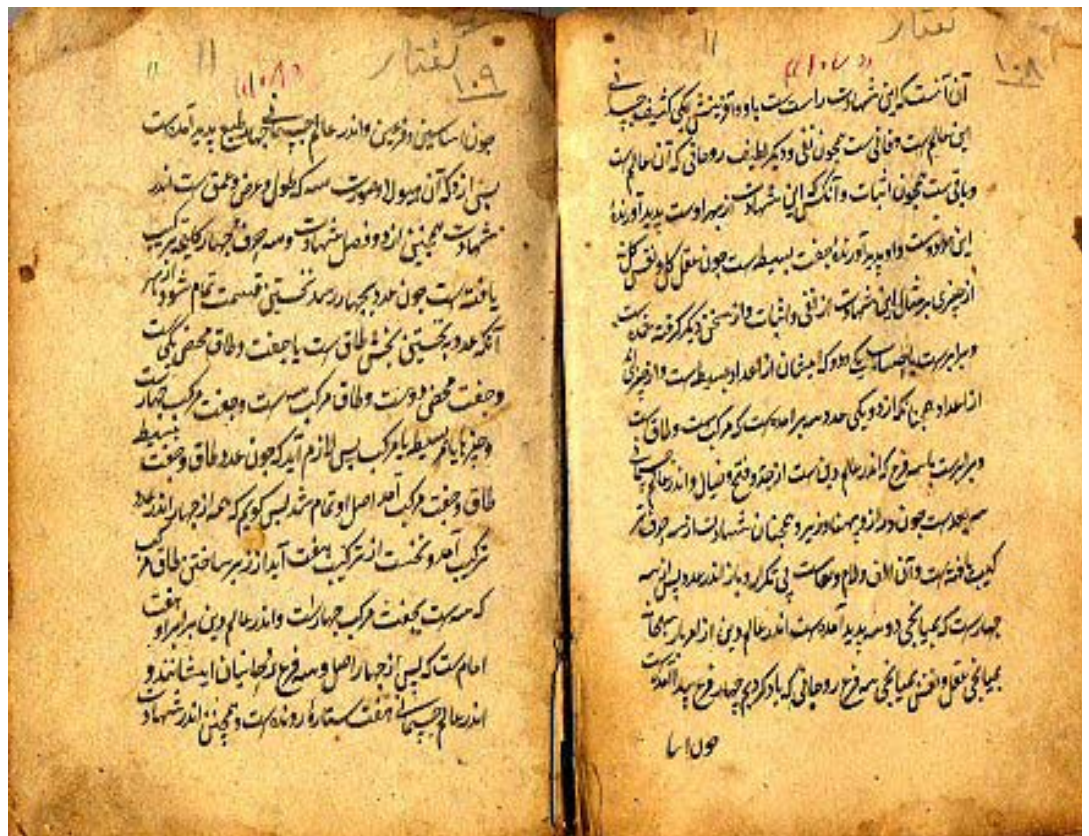 گفتار
۱۰۸
آن آنست که این شهادت راست است با دو آفرینش یکی کثیف جسمانی
این عالم است و فانی ست همچون نفی و دیگر لطیف روحانی که آن عالم است
و باقی ست همچون اثبات و آنکس که این شهادت از بهر اوست پدید آورنده
این دو است و او پدید آورنده جفت بسیط است چون عقل کل و نفس کل
از چیزی بر مثال این شهادت از نفی و اثبات و از سخن دیگر گرفته شده است
و برابر است با حساب یک و دو که ایشان از اعداد بسیط است و از
از اعداد همچنانکه از دو و یکی عدد سه برآمده است که مرکب است و طاق است
و برابر است با سه فرع که اندر عالم دین است از جد و فتح و خیال و اندر عالم جسمانی
سه بعد است چون دراز و پهنا و زبر و همچنان شهادت از سه حرف تر
کیب یافته است و آن الف و لام و هاست بی تکرار و باز اندر عدد پس از سه
چهار است که بمیانجی دو و سه پدید آمده است اندر عالم دین از امر باری سبحانه
بمیانجی عقل و نفس بمیانجی سه فرع روحانی که یاد کردیم چهار فرع پیدا آمده است
چون اسا
گفتار
۱۰۹
چون اساسین و فرعین و اندر عالم جسمانی چهار طبع پدید آمده است
پس از آنکه آن هیولا و صورت سه که طول و عرض و عمق ست اندر
شهادت همچنین از دو فصل شهادت و سه حرف چهار کلمه ترکیب
یافته است چون عدد بچهار رسد نخستین قسمت تمام شود از بهر
آنکه عدد نخستین بخش طاق است یا جفت و طاق محض یکی است
و جفت محض دو است و طاق مرکب سه است و جفت مرکب چهار است
و چیزها یا بسیط یا مرکب پس لازم آید که چون عدد طاق و جفت بسیط
طاق و جفت مرکب آمد اصل او تمام شد پس گوییم که همه از چهار اندر عدد
ترکیب آمد و نخست از ترکیب هفت آید از زبر ساختن طاق مرکب
که سه است بجفت مرکب چهار است و اندر عالم دین برابر او هفت
امام ست که پس از چهار اصل و سه فرع روحانیان ایشانند و
اندر عالم جسمانی هفت ستاره رونده است و همچنین اندر شهادت